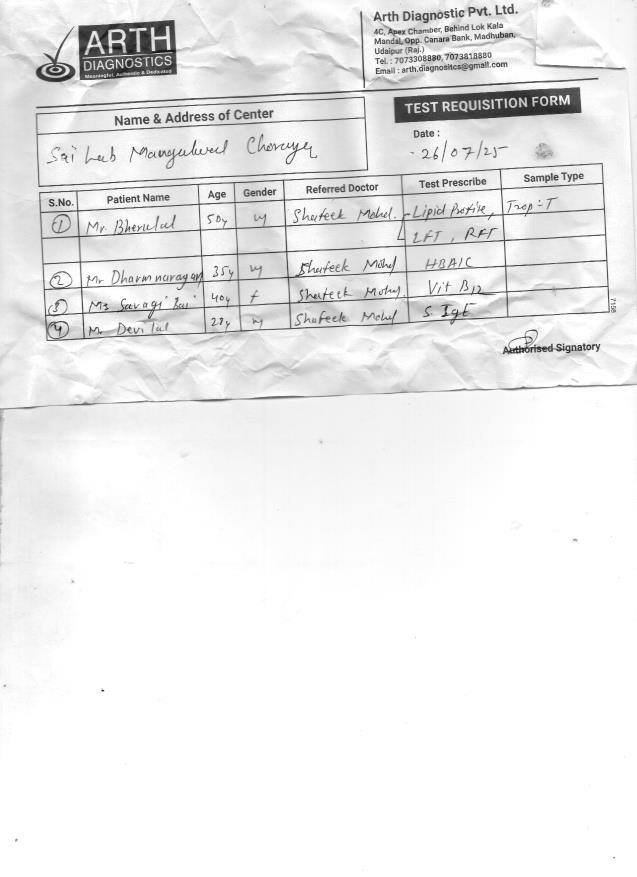 ARTH
DIAGNOSTICS
Meaningful, Authentic & Dedicated
Arth Diagnostic Pvt. Ltd.
4C, Apex Chamber, Behind Lok Kala
Mandal, Opp. Canara Bank, Madhuban,
Udaipur (Raj.)
Tel. : 7073308880, 7073818880
Email : arth.diagnositcs@gmail.com
Name & Address of Center
TEST REQUISITION FORM
Sai Lab
Date :
26/07/25
S.No. Patient Name Age Gender Referred Doctor Test Prescribe Sample Type
1 Mr. Bherulal 50y M Shafeek Mohd. Lipid Profile, Trop-T
LFT, RFT
2 Mr Dharmnarayan 35y M Shafeek Mohd HBA1C
3 Ms 40y F Shafeek Mohd. Vit B12
4 Mr Devilal 28y M Shafeek Mohd S. IgE
7156
Authorised Signatory